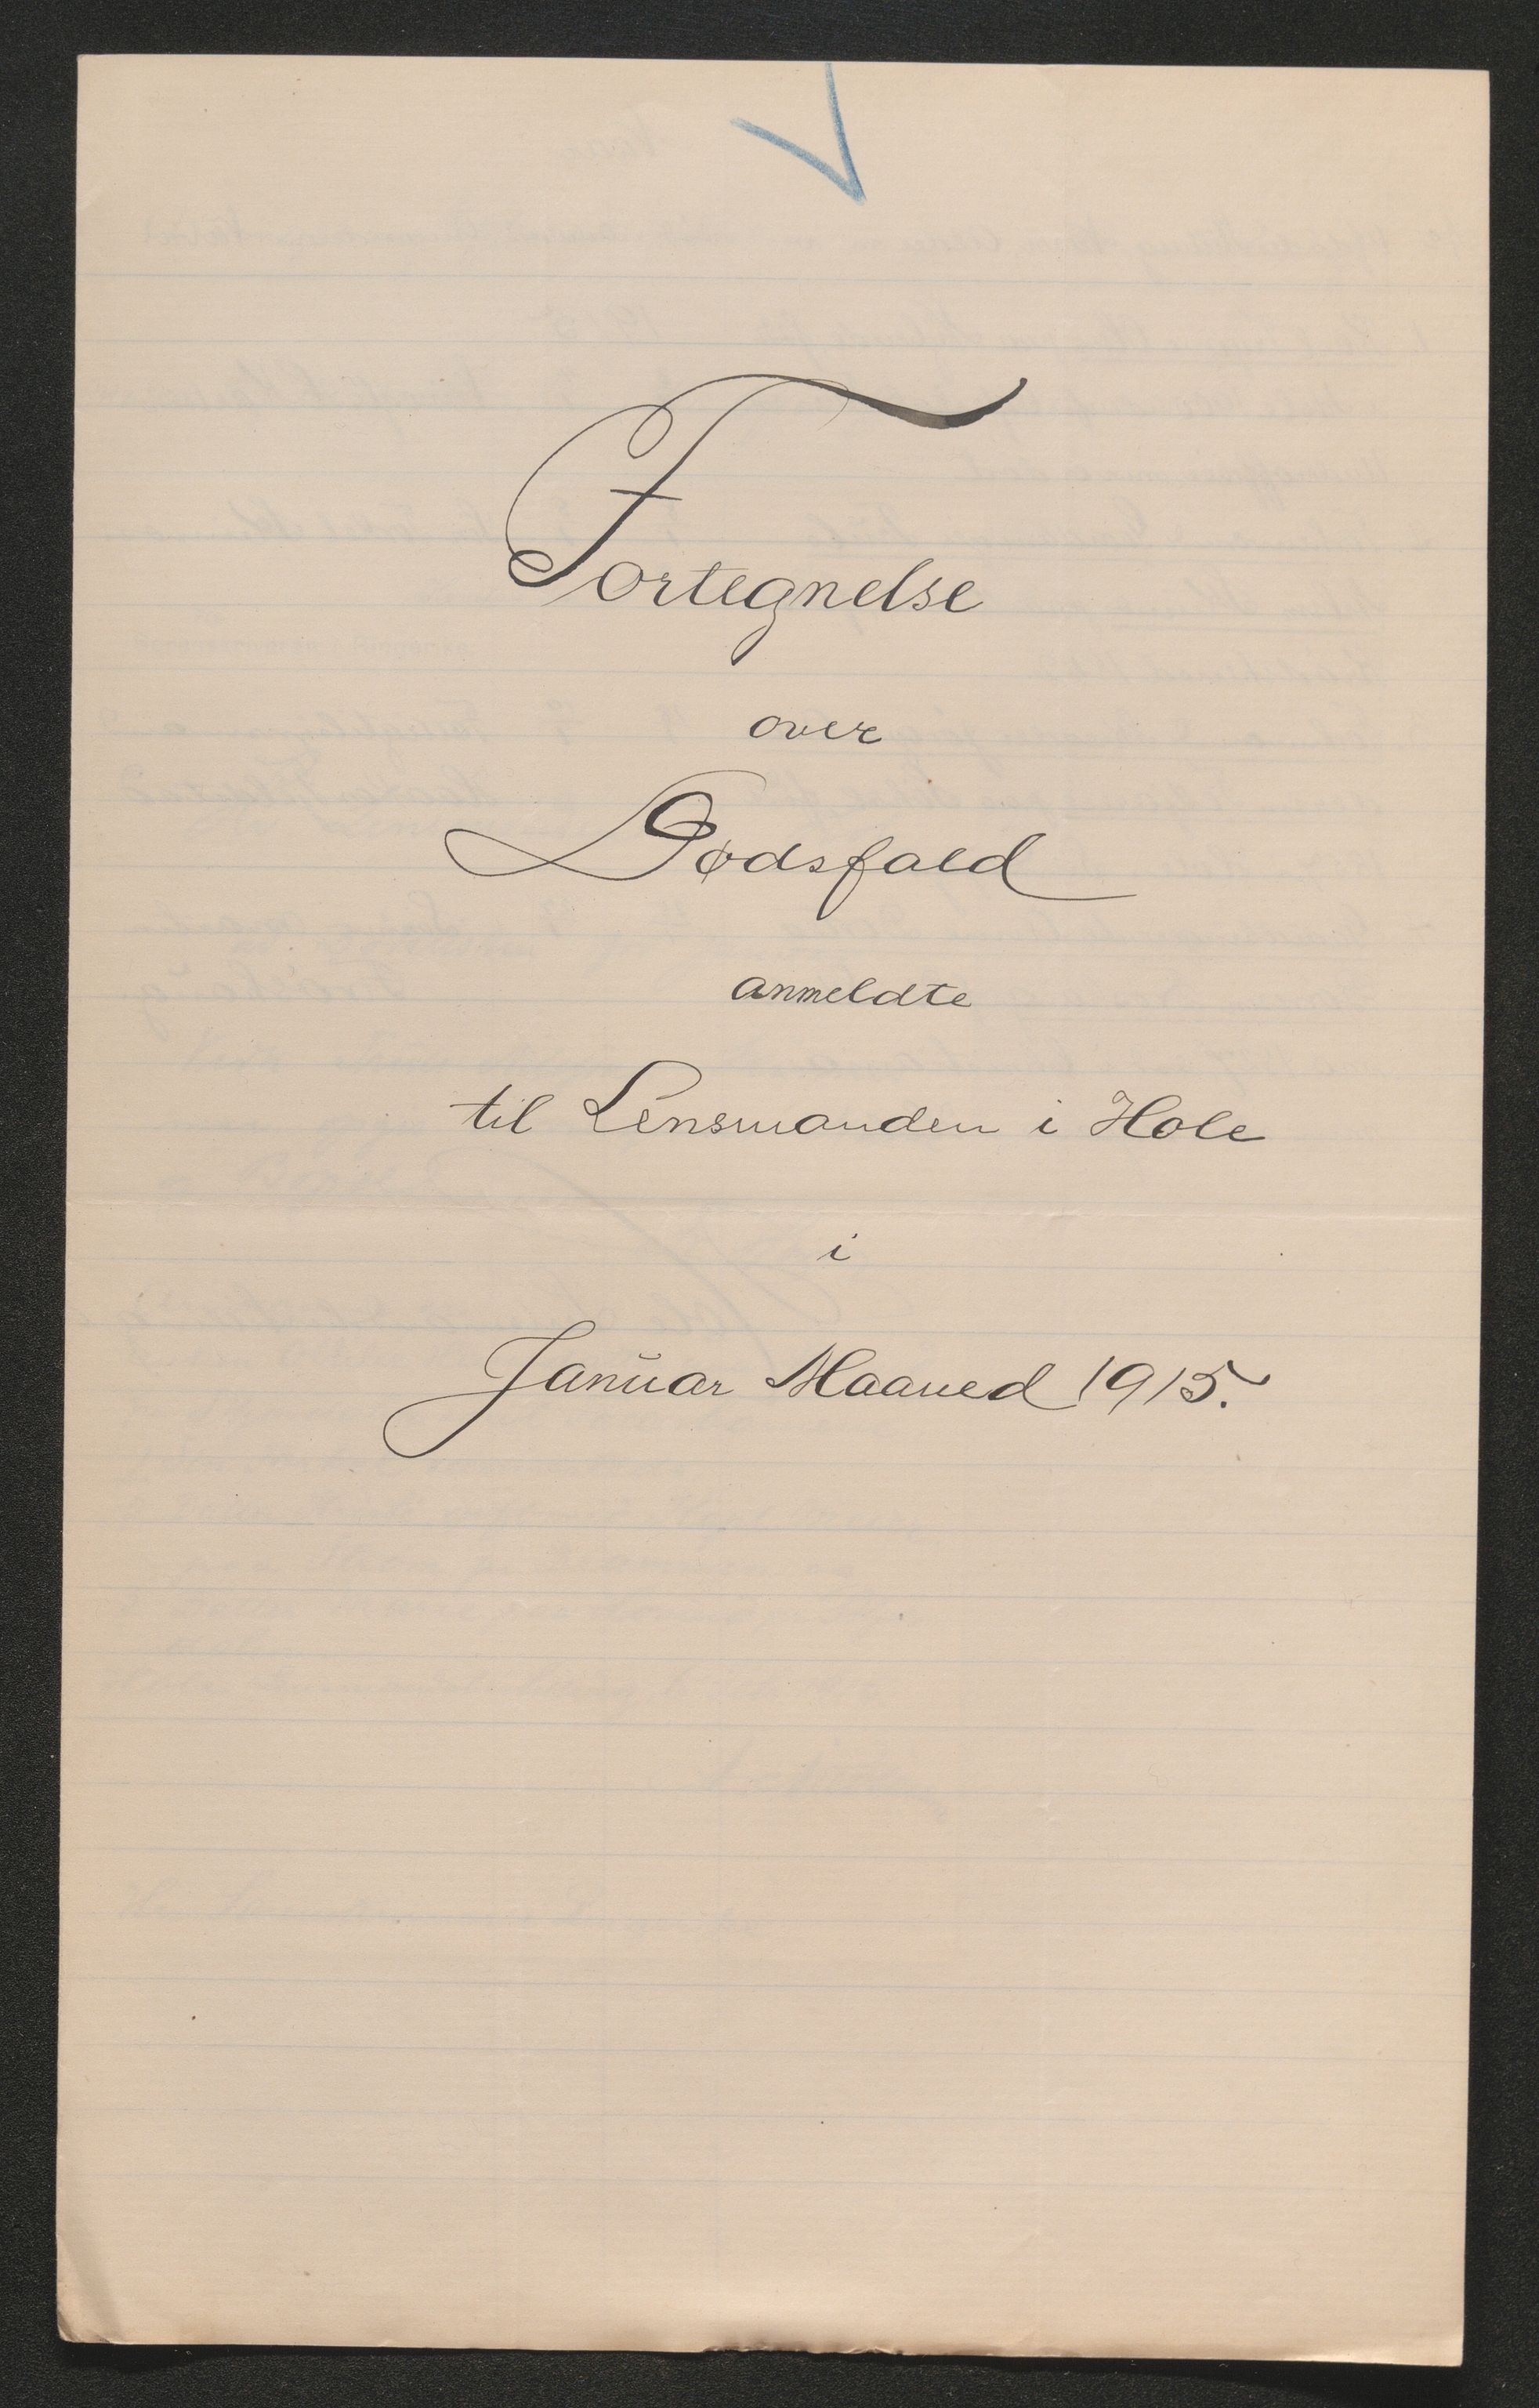 Fortegnelse
over
Dødsfald
anmeldte
til Lensmanden i Hole
i
Januar Maaned 1915.